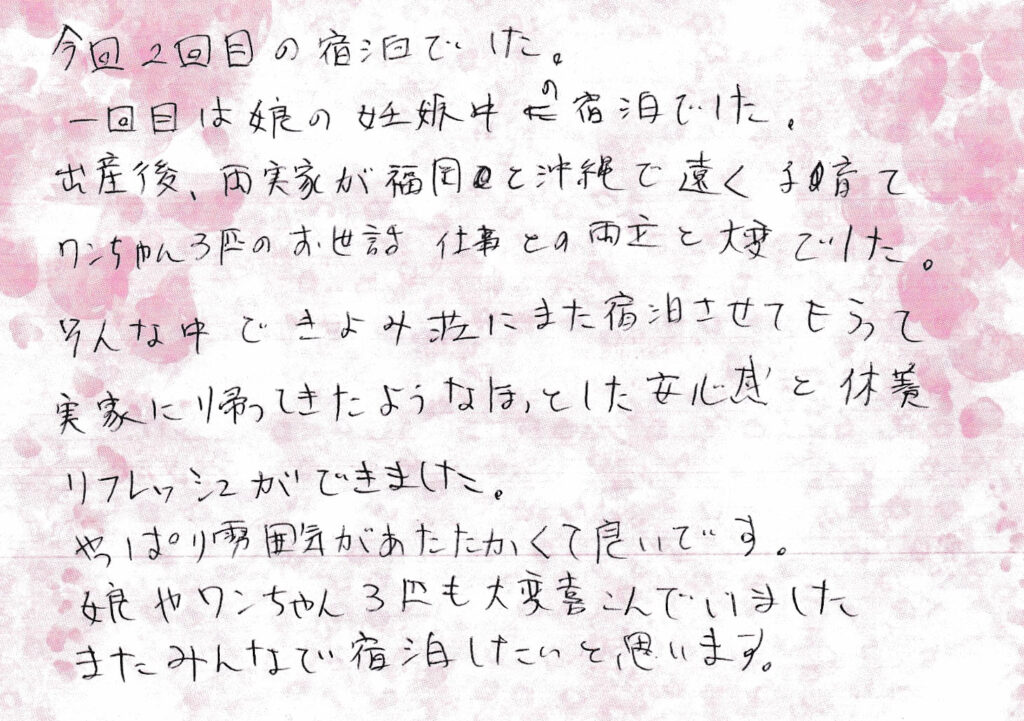 今回2回目の宿泊でした。
一回目は娘の妊娠中の宿泊でした。
出産後、両実家が福岡と沖縄で遠く 子育て
ワンちゃん3匹のお世話 仕事との両立と大変でした。
そんな中できよみ荘にまた宿泊させてもらって
実家に帰ってきたようなほっとした安心感と休養
リフレッシュができました。
やっぱり雰囲気があたたかくて良いです。
娘やワンちゃん3匹も大変喜こんでいました
またみんなで宿泊したいと思います。